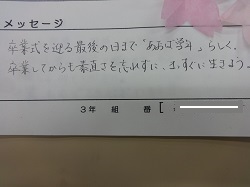 メッセージ
卒業式を迎える最後の日まで「あおば学年」らしく、
卒業してからも素直さを忘れずに、まっすぐに生きよう。
3年 組 番 [